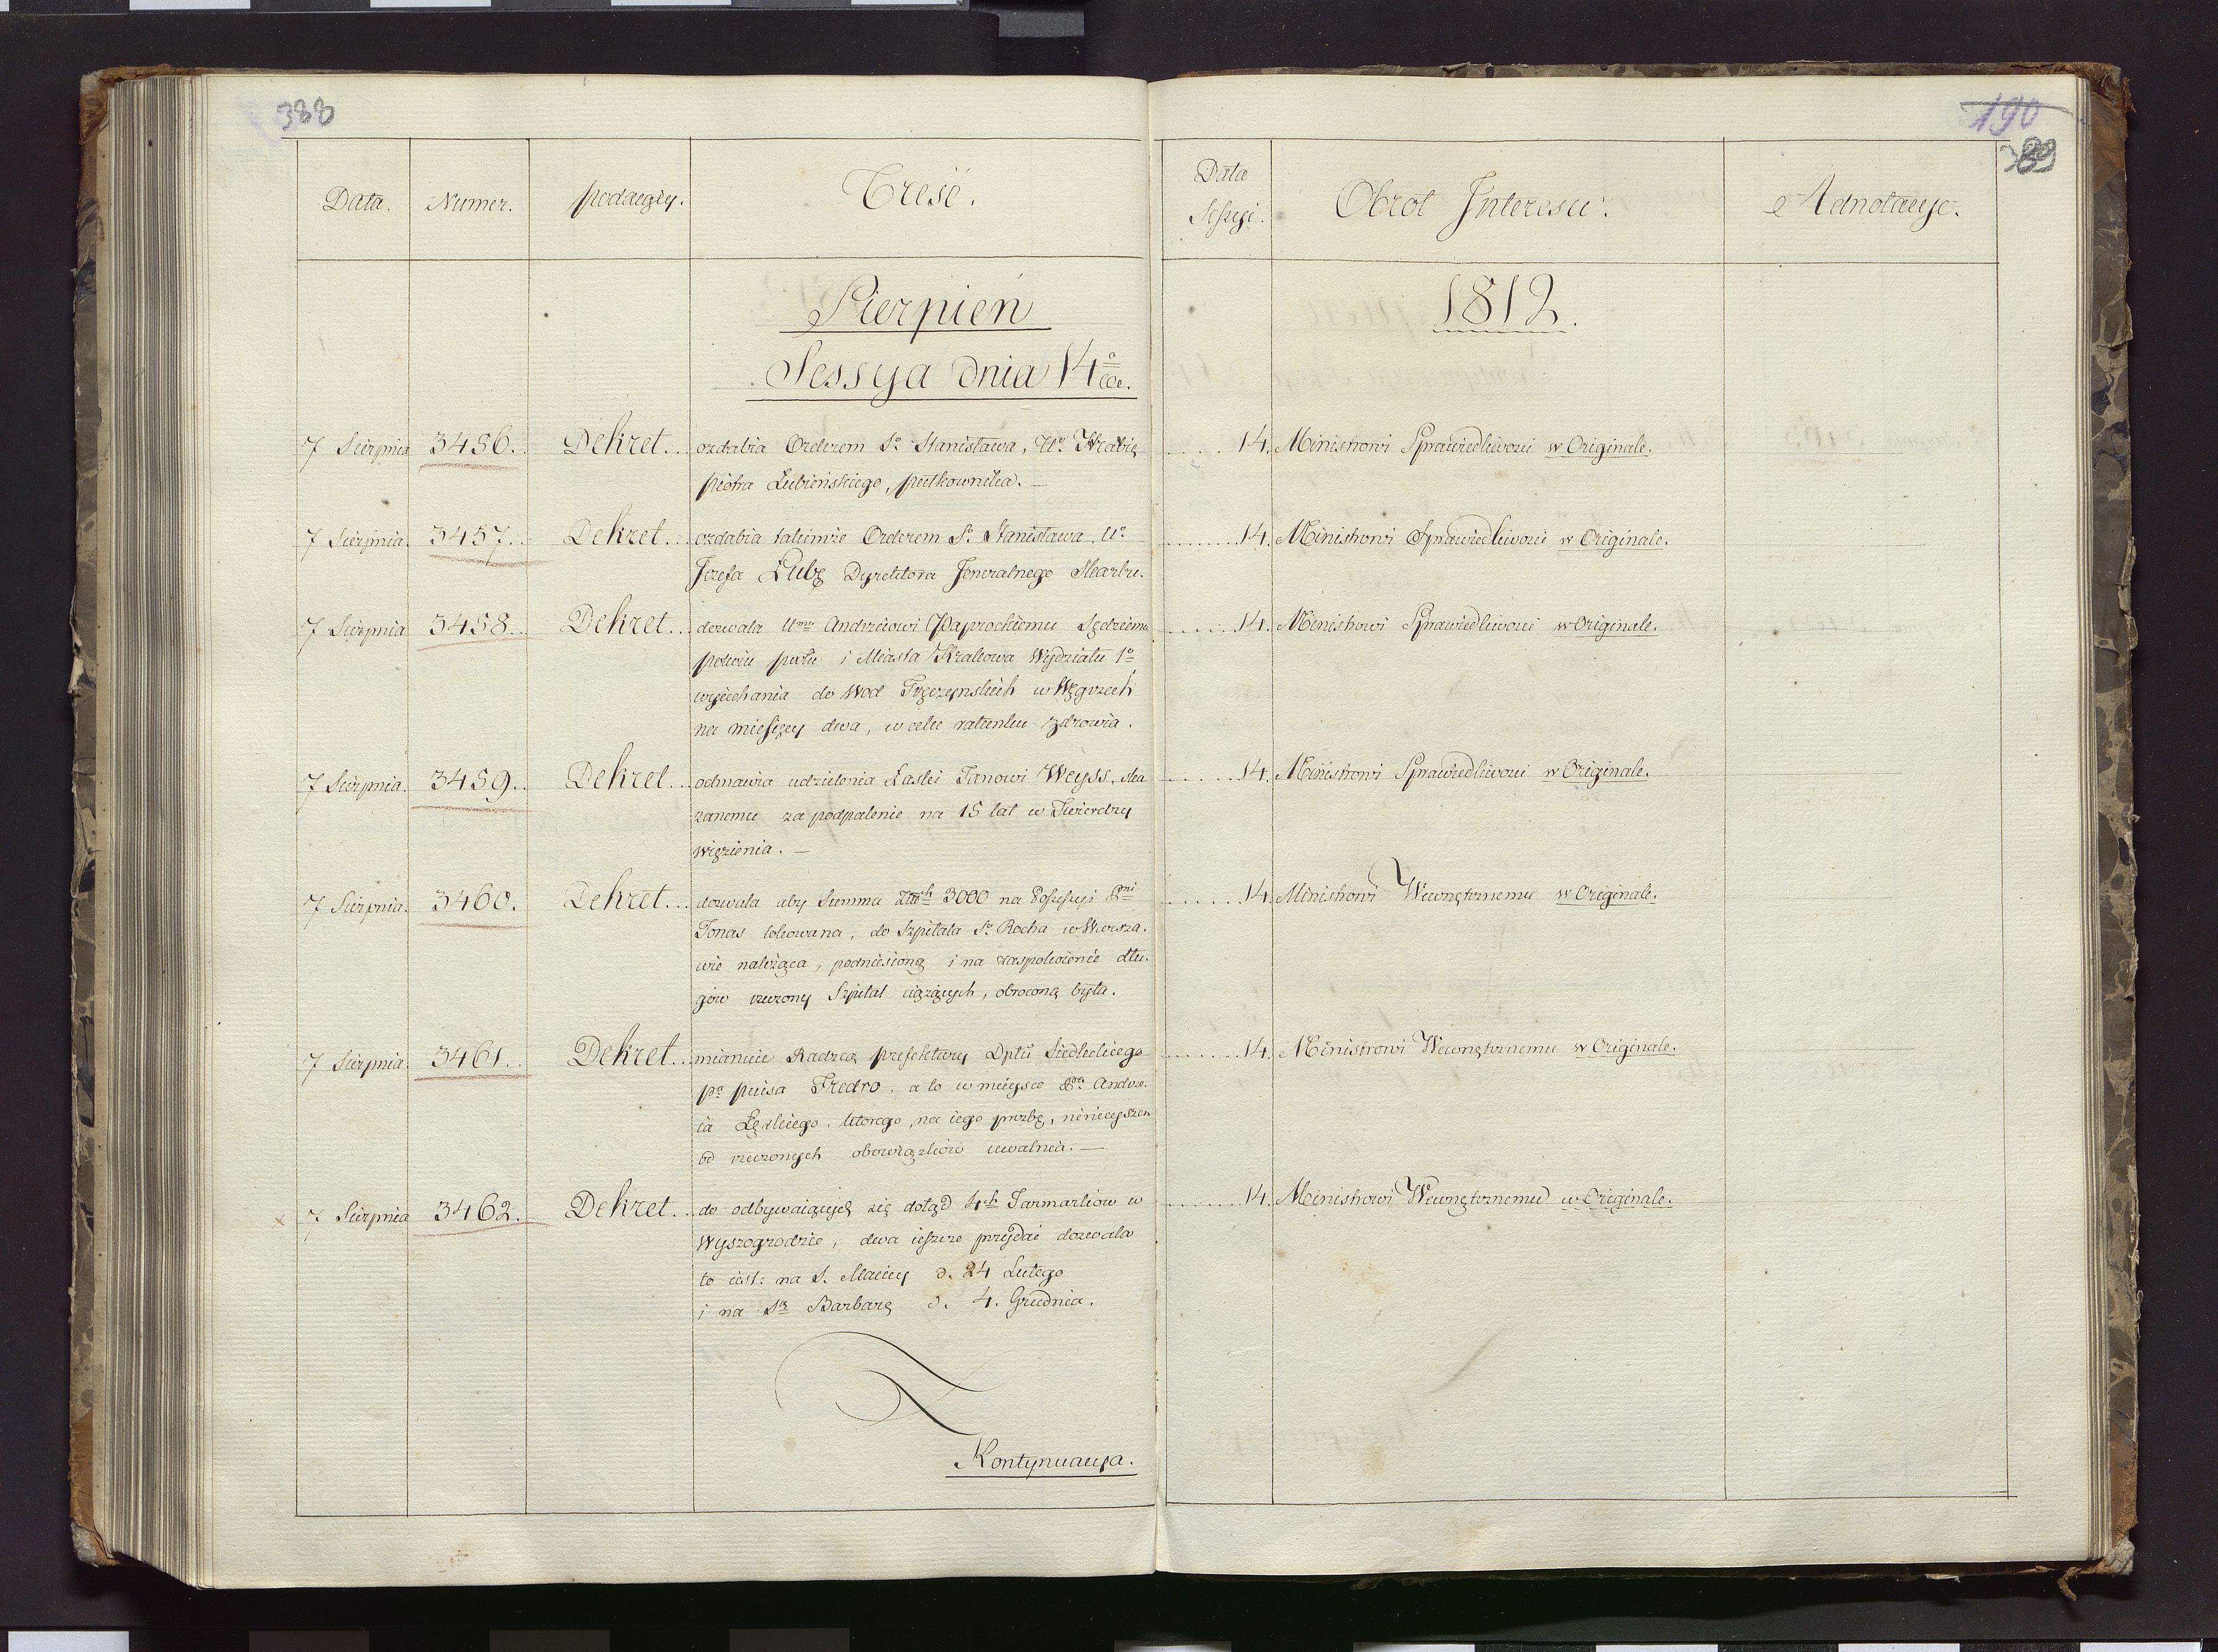 388
190
389
Data. Numer. podaiący. Treść. Data Sessyi. Obrot Interesu. Adnotacye.
Sierpień 1812.
Sessya dnia 14º
7 Sierpnia 3456. Dekret. ozdabia Orderem Sº Stanisława, Uº Hrabię 14. Ministrowi Sprawiedliwości w Originale.
Piotra Łubieńskiego, pułkownika. —
7 Sierpnia 3457. Dekret. ozdabia takimże Orderem Sº Stanisława, Uº 14. Ministrowi Sprawiedliwości w Originale.
Józefa Lubę Dyrektora Jeneralnego Skarbu.
7 Sierpnia 3458. Dekret. dozwala Umu Andrzeiowi Paprockiemu Sędziemu 14. Ministrowi Sprawiedliwości w Originale.
pokoiu pttu i Miasta Krakowa Wydziału 1º
wyiechania do Wod Tręczynskich w Węgrzech
na miesięcy dwa, w celu ratunku zdrowia.
7 Sierpnia. 3459. Dekret. odmawia udzielenia Łaski Janowi Weyss, ska 14. Ministrowi Sprawiedliwości w Originale.
zanemu za podpalenie na 15 lat w Twierdzy
więzienia. —
7 Sierpnia. 3460. Dekret. dozwala aby Summa 3000 na Possessyi 14. Ministrowi Wewnętrznemu w Originale.
Jonas lokowana, do Szpitala Sº Rocha w Warsza-
wie należąca, podniesioną i na zaspokoienie dłu-
gów rzeczony Szpital ciążących, obroconą była.
7 Sierpnia. 3461. Dekret. mianuie Radzcą prefektury Dptu Siedleckiego 14. Ministrowi Wewnętrznemu w Originale.
pa Fredro, a to w mieysce Andrze-
ia którego, na iego prozbę, ninieyszem
od rzeczonych obowiązków uwalnia. —
7 Sierpnia 3462. Dekret. do odbywaiących się dotąd 4ch Jarmarków w 14. Ministrowi Wewnętrznemu w Originale.
Wyszogrodzie, dwa ieszcze przydać dozwala
to iest: na S. Maciey d. 24 Lutego
i na Stą Barbarę d. 4. Grudnia.
Kontynuacya.